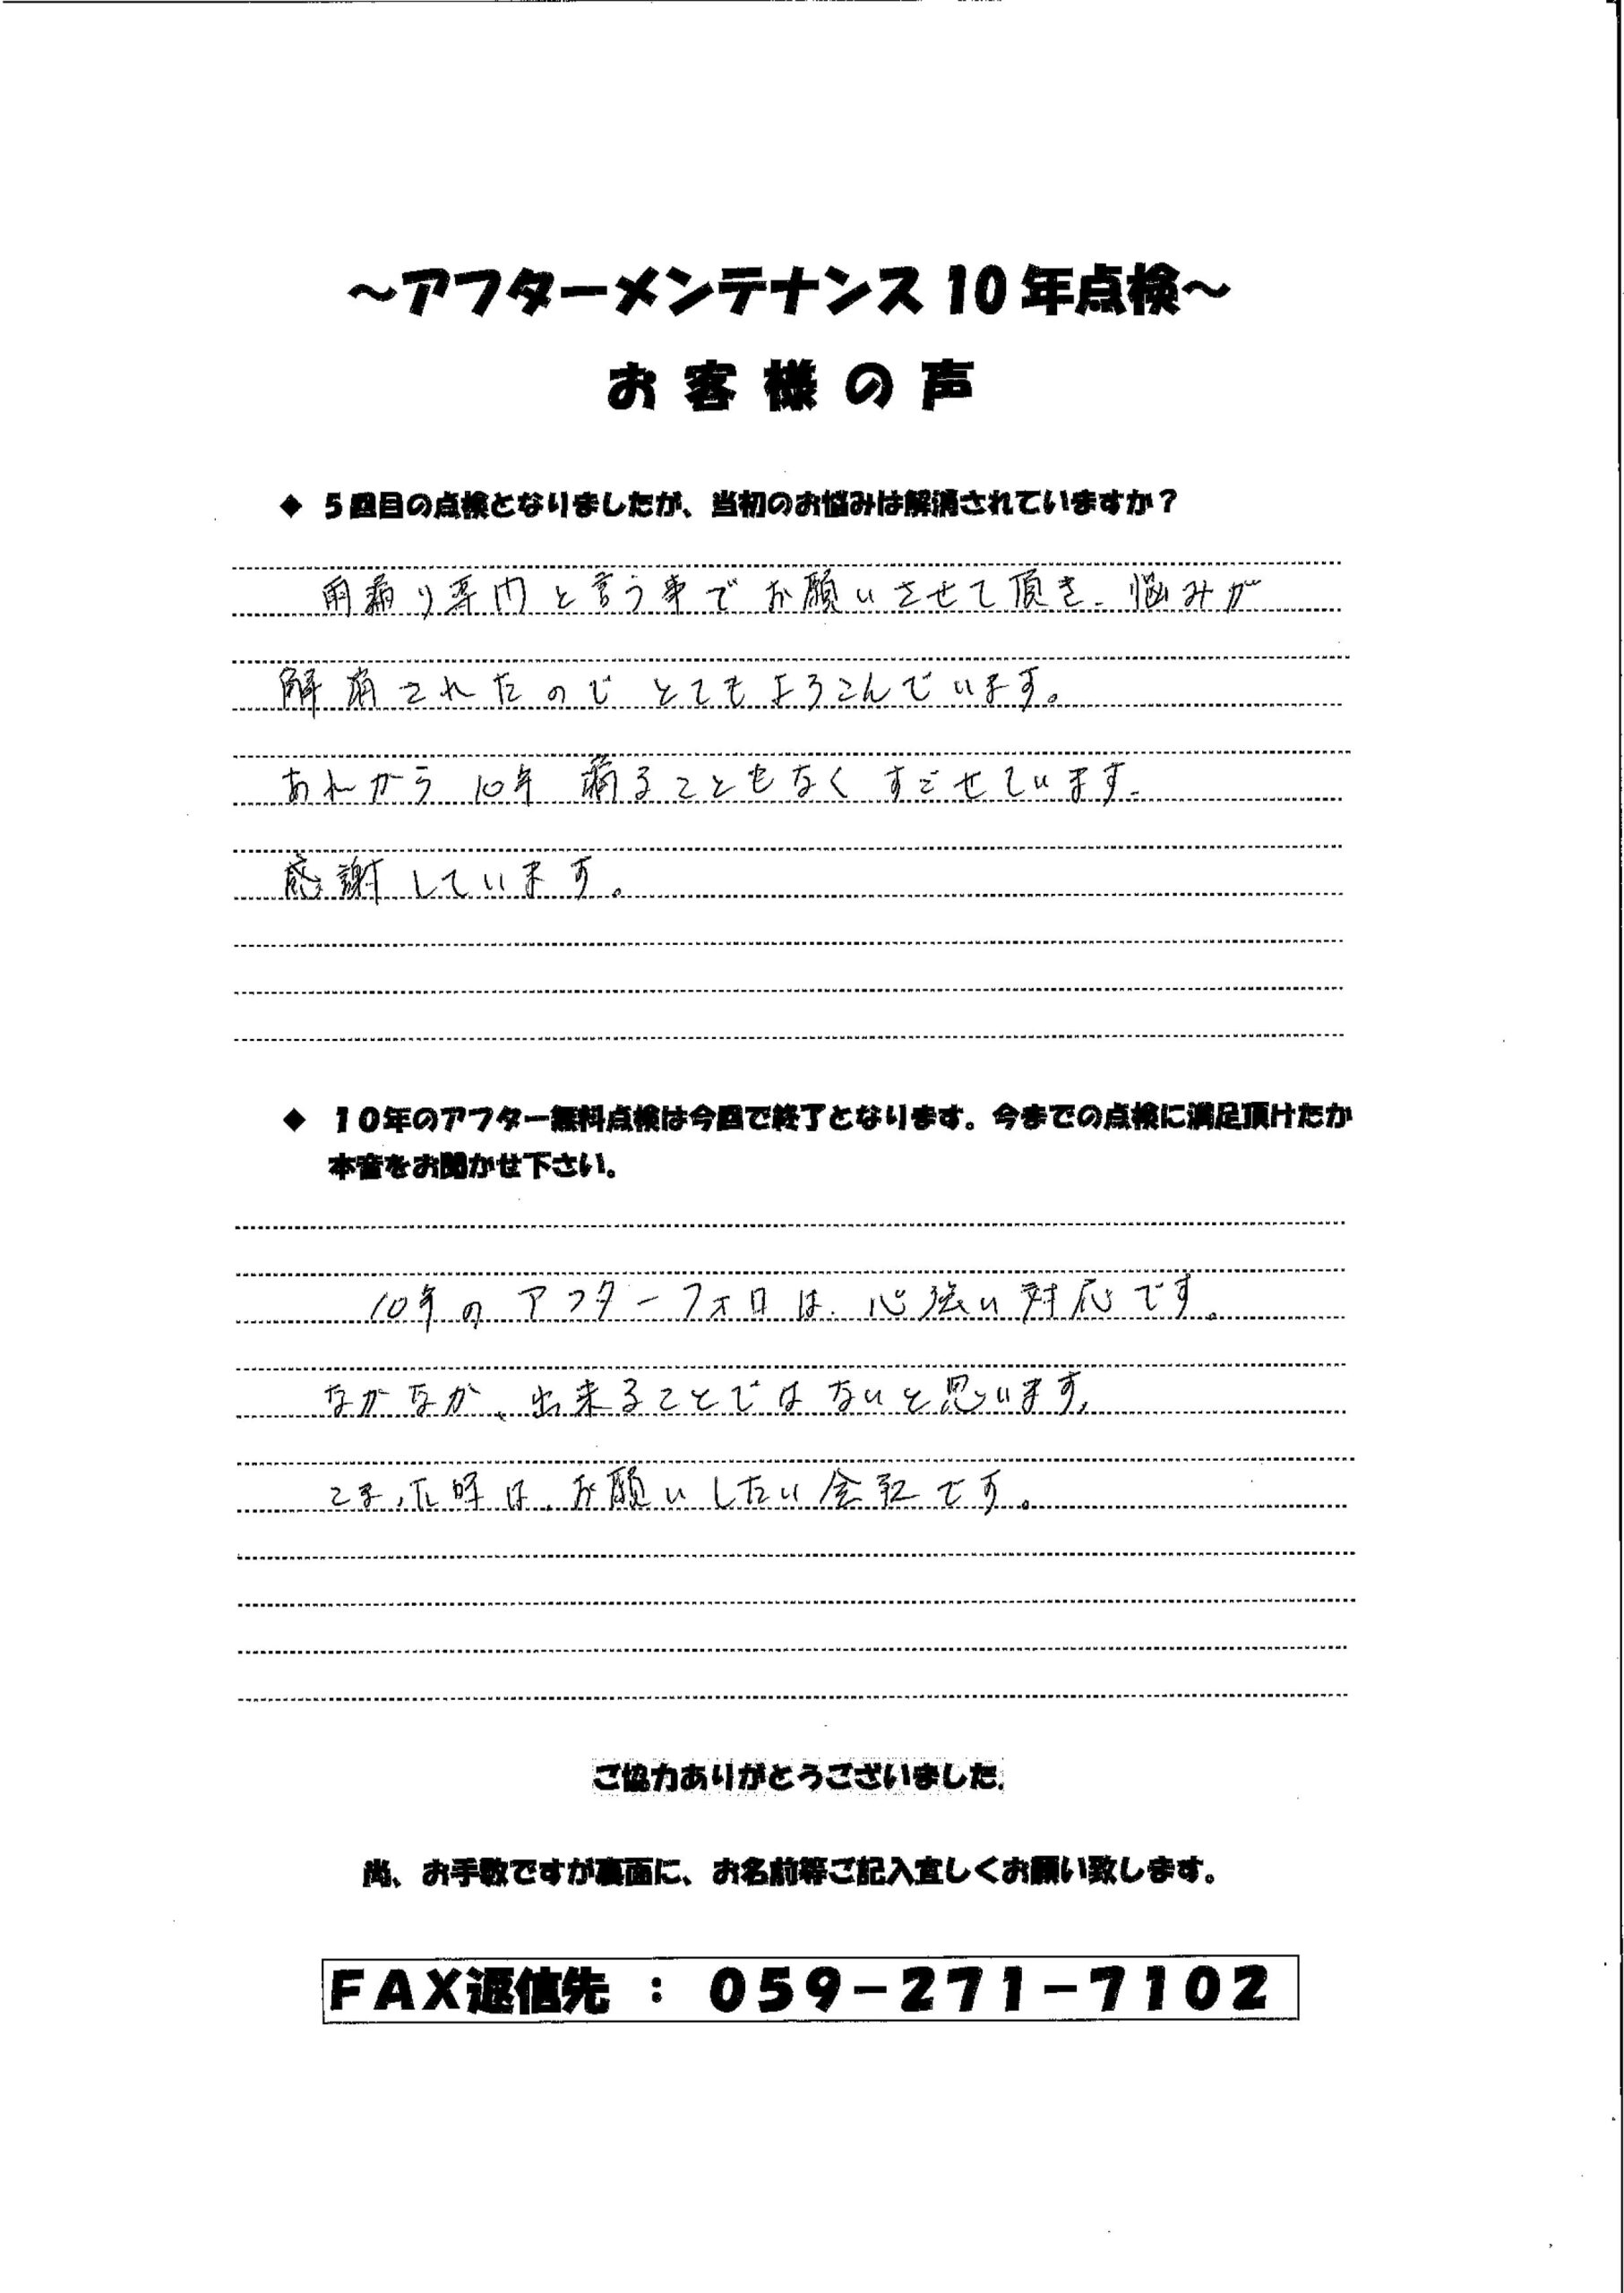 ～アフターメンテナンス10年点検～
お客様の声
◆ 5回目の点検となりましたが、当初のお悩みは解消されていますか？
雨漏り専門と言う事でお願いさせて頂き、悩みが
解消されたのでとてもよろこんでいます。
あれから10年 漏ることもなくすごせています。
感謝しています。
◆ 10年のアフター無料点検は今回で終了となります。今までの点検に満足頂けたか
本音をお聞かせ下さい。
10年のアフターフォローは、心強い対応です。
なかなか、出来ることではないと思います。
こまった時は、お願いしたい会社です。
ご協力ありがとうございました。
尚、お手数ですが裏面に、お名前等ご記入宜しくお願い致します。
FAX返信先 ： 059-271-7102